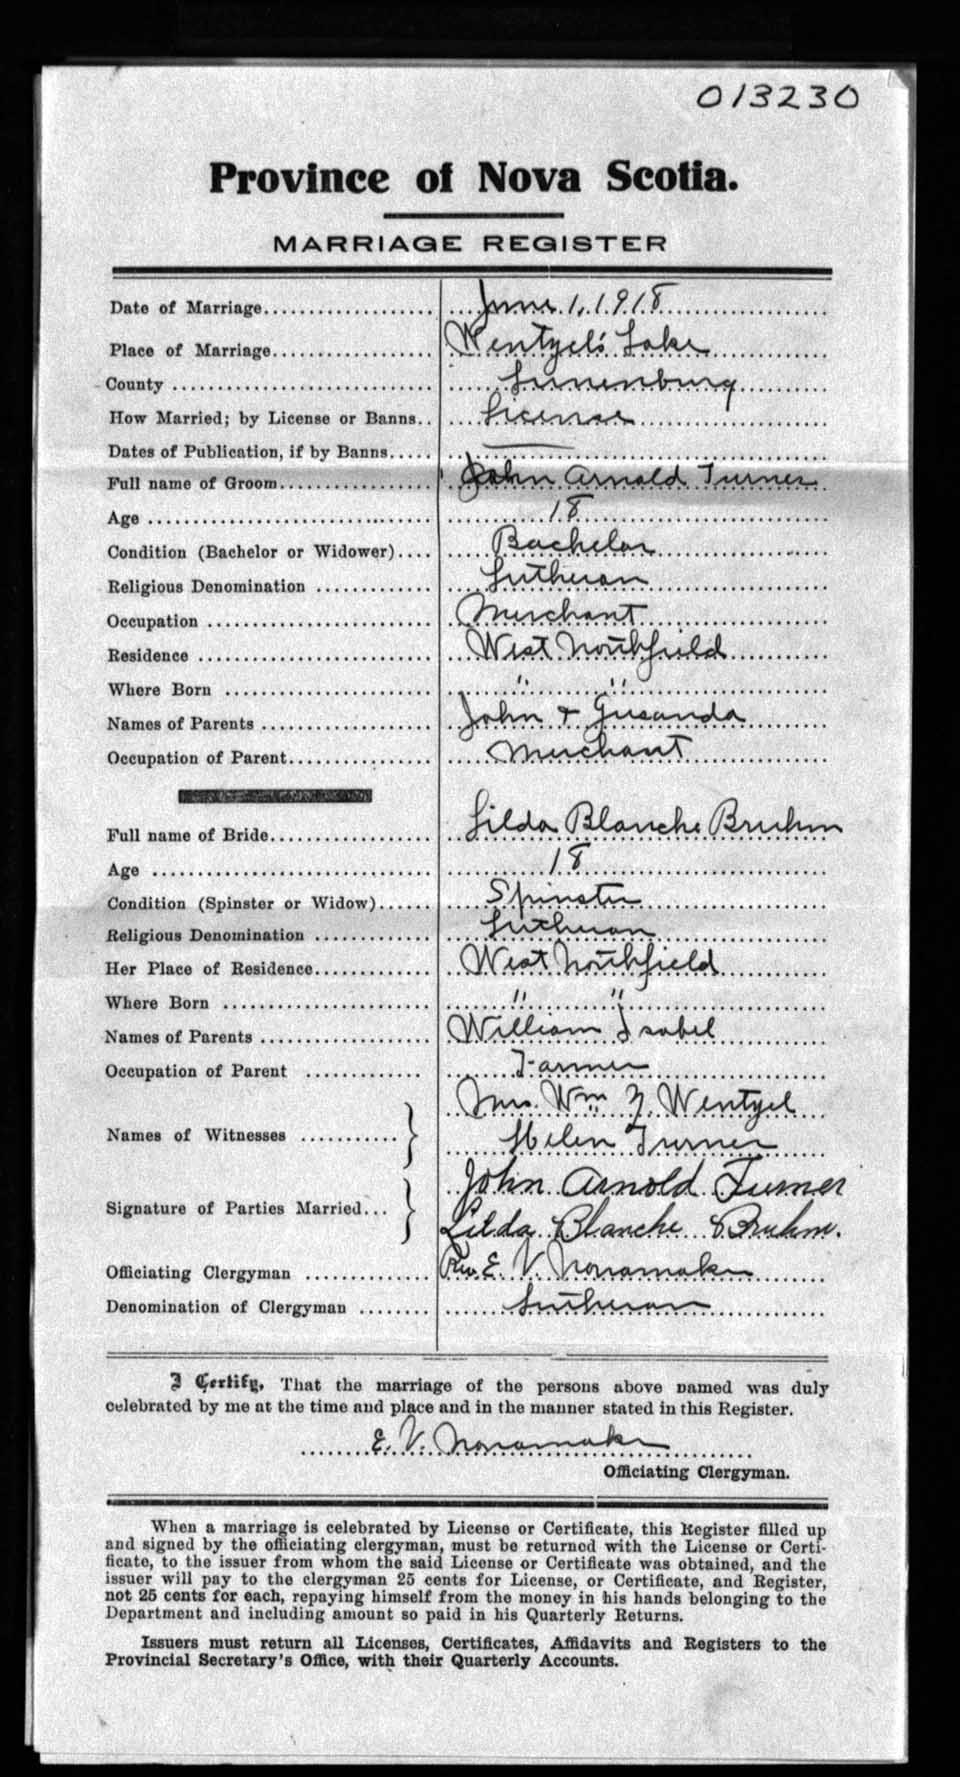 013230
Province of Nova Scotia.
MARRIAGE REGISTER
Date of Marriage.................... June 1, 1918
Place of Marriage.................. Wentzel's Lake
County ............................. Lunenburg
How Married; by License or Banns.. License
Dates of Publication, if by Banns..... —
Full name of Groom.................. John Arnold Turner
Age ................................ 18
Condition (Bachelor or Widower).... Bachelor
Religious Denomination ............. Lutheran
Occupation ......................... Merchant
Residence .......................... West Northfield
Where Born ........................ " "
Names of Parents ................... John & Gusanda
Occupation of Parent................ Merchant
Full name of Bride.................. Lilda Blanche Bruhm
Age ................................ 18
Condition (Spinster or Widow)...... Spinster
Religious Denomination ............. Lutheran
Her Place of Residence............. West Northfield
Where Born ........................ " "
Names of Parents ................... William Isabel
Occupation of Parent ............. Farmer
Names of Witnesses ........... } Mrs. Wm Z. Wentzel
Helen Turner
Signature of Parties Married... } John Arnold Turner
Lilda Blanche Bruhm.
Officiating Clergyman ............. Rev. E. V. Nonamaker
Denomination of Clergyman ........ Lutheran
I Certify, That the marriage of the persons above named was duly
celebrated by me at the time and place and in the manner stated in this Register.
E. V. Nonamaker
Officiating Clergyman.
When a marriage is celebrated by License or Certificate, this Register filled up
and signed by the officiating clergyman, must be returned with the License or Certi-
ficate, to the issuer from whom the said License or Certificate was obtained, and the
issuer will pay to the clergyman 25 cents for License, or Certificate, and Register,
not 25 cents for each, repaying himself from the money in his hands belonging to the
Department and including amount so paid in his Quarterly Returns.
Issuers must return all Licenses, Certificates, Affidavits and Registers to the
Provincial Secretary's Office, with their Quarterly Accounts.